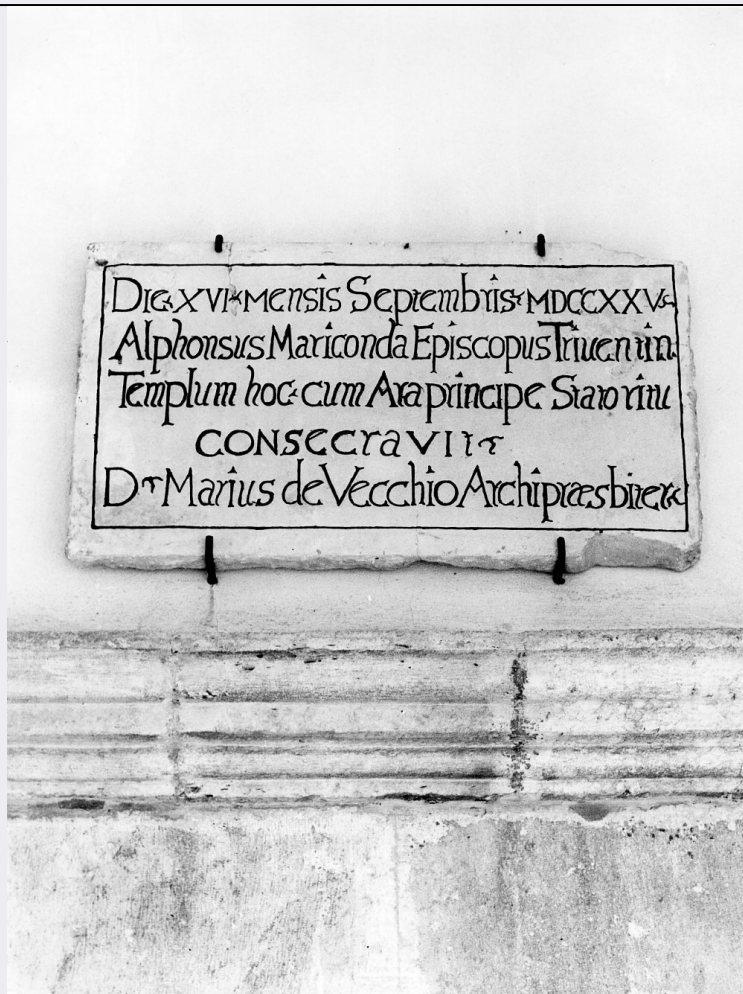 Die XVI Mensis Septembris MDCCXXV
Alphonsus Mariconda Episcopus Triuentin
Templum hoc cum Ara principe Stato ritu
CONSECRAVIT
D Marius de Vecchio Archipræsbiter